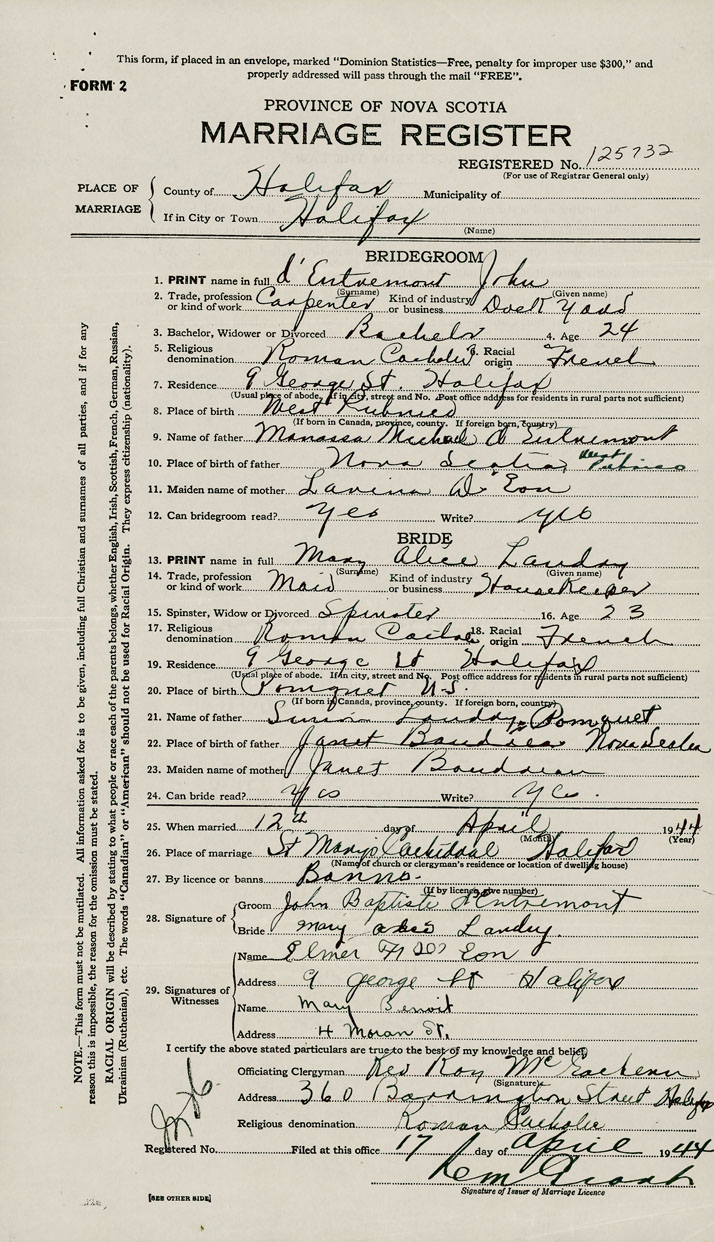 This form, if placed in an envelope, marked "Dominion Statistics—Free, penalty for improper use $300," and
properly addressed will pass through the mail "FREE".
FORM 2
PROVINCE OF NOVA SCOTIA
MARRIAGE REGISTER
REGISTERED No. 125732
(For use of Registrar General only)
PLACE OF MARRIAGE
County of Halifax Municipality of
If in City or Town Halifax
(Name)
BRIDEGROOM
1. PRINT name in full d'Entremont John
(Surname) (Given name)
2. Trade, profession or kind of work Carpenter Kind of industry or business Dock Yard
3. Bachelor, Widower or Divorced Bachelor 4. Age 24
5. Religious denomination Roman Catholic 6. Racial origin French
7. Residence 9 George St. Halifax
(Usual place of abode. If in city, street and No. Post office address for residents in rural parts not sufficient)
8. Place of birth West Pubnico
(If born in Canada, province, county. If foreign born, country)
9. Name of father Manassa Michael d'Entremont
10. Place of birth of father Nova Scotia West Pubnico
11. Maiden name of mother Lavina D'Eon
12. Can bridegroom read? Yes Write? yes
BRIDE
13. PRINT name in full Mary Alice Landry
(Surname) (Given name)
14. Trade, profession or kind of work Maid Kind of industry or business HouseKeeper
15. Spinster, Widow or Divorced Spinster 16. Age 23
17. Religious denomination Roman Catholic 18. Racial origin French
19. Residence 9 George St Halifax
(Usual place of abode. If in city, street and No. Post office address for residents in rural parts not sufficient)
20. Place of birth Pomquet N.S.
(If born in Canada, province, county. If foreign born, country)
21. Name of father Landry Pomquet
22. Place of father Janet Boudreau Nova Scotia
23. Maiden name of mother Janet Boudreau
24. Can bride read? Yes Write? Yes.
25. When married 12th day of April 1944
(Month) (Year)
26. Place of marriage St Mary's Cathedral Halifax
(Name of church or clergyman's residence or location of dwelling house)
27. By licence or banns Banns.
(If by licence give number)
28. Signature of
Groom John Baptiste d'Entremont
Bride Mary Alice Landry.
29. Signatures of Witnesses
Name Elmer Eon
Address 9 George St Halifax
Name Mary Benoit
Address 4 Moran St.
I certify the above stated particulars are true to the best of my knowledge and belief.
Officiating Clergyman Rev Ray McEachern
(Signature)
Address 360 Barrington Street Halifax
Religious denomination Roman Catholic
Registered No. Filed at this office 17 day of April 1944
Signature of Issuer of Marriage Licence
[SEE OTHER SIDE]
NOTE.—This form must not be mutilated. All information asked for is to be given, including full Christian and surnames of all parties, and if for any
reason this is impossible, the reason for the omission must be stated.
RACIAL ORIGIN will be described by stating to what people or race each of the parents belongs, whether English, Irish, Scottish, French, German, Russian,
Ukrainian (Ruthenian), etc. The words "Canadian" or "American" should not be used for Racial Origin. They express citizenship (nationality).